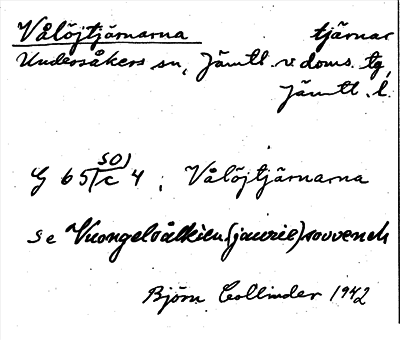 Vålöjtjärnarna tjärnar
Undersåkers sn, Jämtl. v. doms. tg,
Jämtl. l.
G 65 (SO) c 4, Vålöjtjärnarna
se Vuongelvålkien (jaurie) souveneh
Björn Collinder 1942